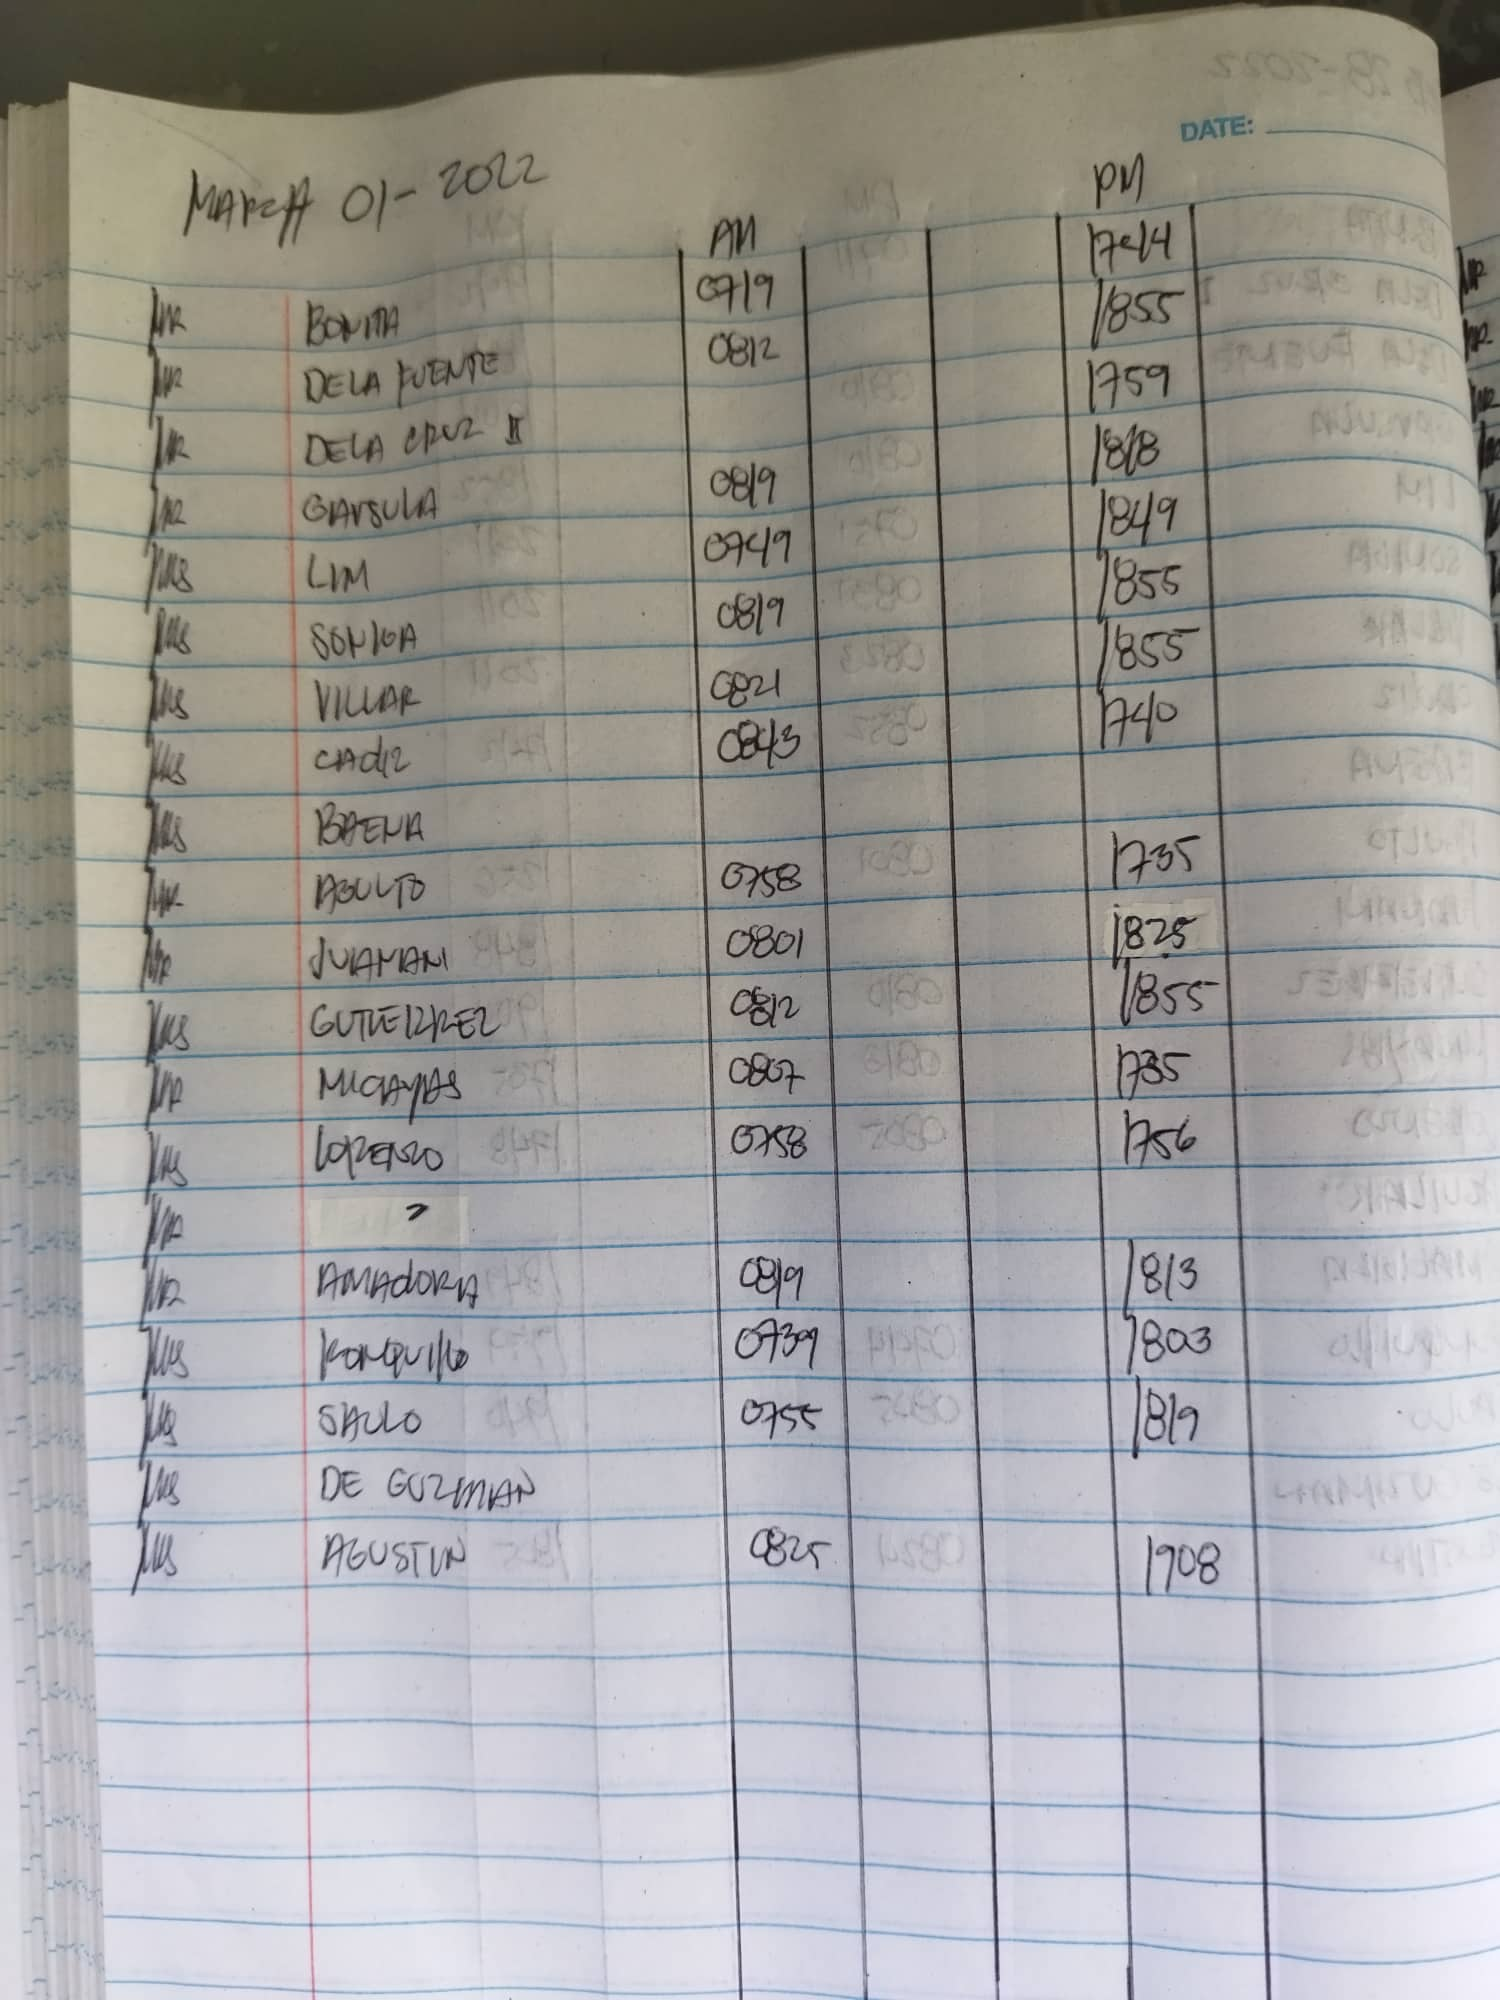 DATE:
MARCH 01-2022
AM PM
MR BONITA 0719 1744
MR DELA FUENTE 0812 1855
MR DELA CRUZ II 1759
MR GAVSULA 0819 1818
MRS LIM 0749 1849
MRS SONIGA 0819 1855
MRS VILLAR 0821 1855
MRS CADIZ 0843 1740
MRS BAENA
MR AGULTO 0758 1735
MR JULAMANI 0801 1825
MRS GUTIERREZ 0812 1855
MR MICAYAS 0807 1735
MRS LORENZO 0758 1756
MR
MR AMADORA 0819 1813
MRS RONQUILLO 0739 1803
MRS SAULO 0755 1819
MRS DE GUZMAN
MRS AGUSTIN 0825 1908